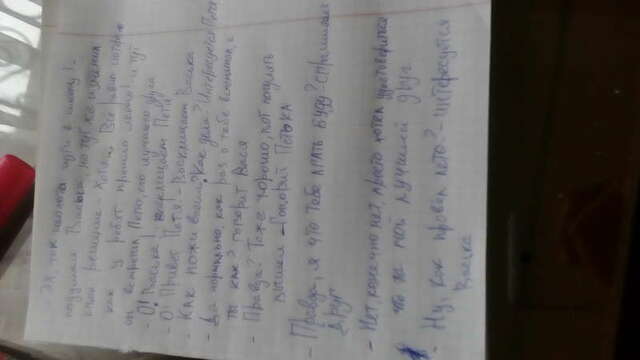 - Эх, так неохота идти в школу! -
подумал Васька, но тут же изменил
своё решение - Хотя, Всё равно интересно
как у ребят прошло лето! и тут
он встретил Петю, его лучшего друга
- О! Васька! восклицает Петя
- О! Привет Петя! - Восклицает Васька
- Как поживаешь? Как дела? Интересуется Петя
- Да нормально, как раз о тебе вспомнил, а
ты как? говорит Вася
- Правда? Тоже хорошо, вот погулять
вышел - Говорит Петька
- Правда, я что тебе лгать буду? - спрашивает
друг
- Нет, конечно нет, просто хотел удостовериться
что ты мой лучший друг
- Ну, как провел лето? - интересуется
Васька